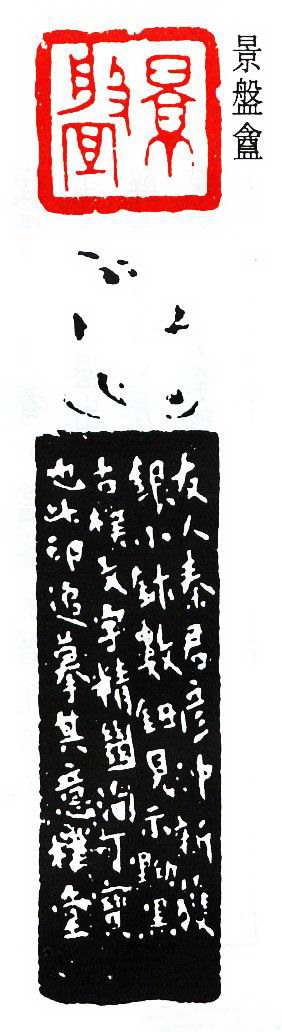 景盤盦
景盤
友人秦君彥沖新獲
銀小鉥數鈕見示黝黑
古樸文字精洵可寶
也此印追摹其意樸堂